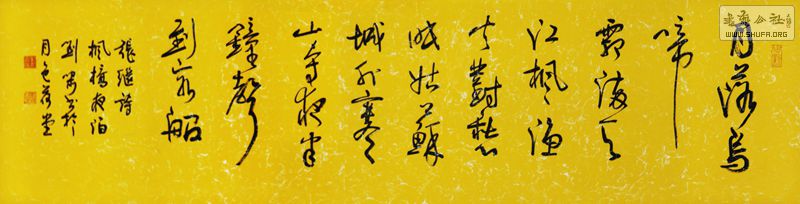 月落烏
啼
霜满天
江楓渔
火對愁
眠姑蘇
城外寒
山寺夜半
鐘聲
到客船
張继詩
楓橋夜泊
书於
月色荷堂
書法公社
WWW.SHUFA.ORG